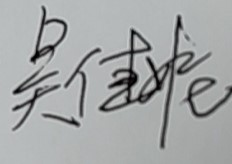 吴佳妮